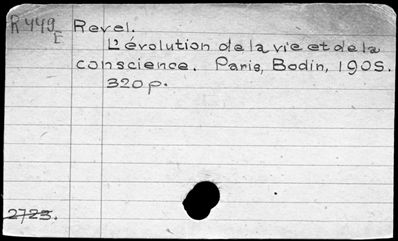 R449 Revel.
E
L'évolution de la vie et de la
conscience. Paris, Bodin, 1905.
320p.
2723.